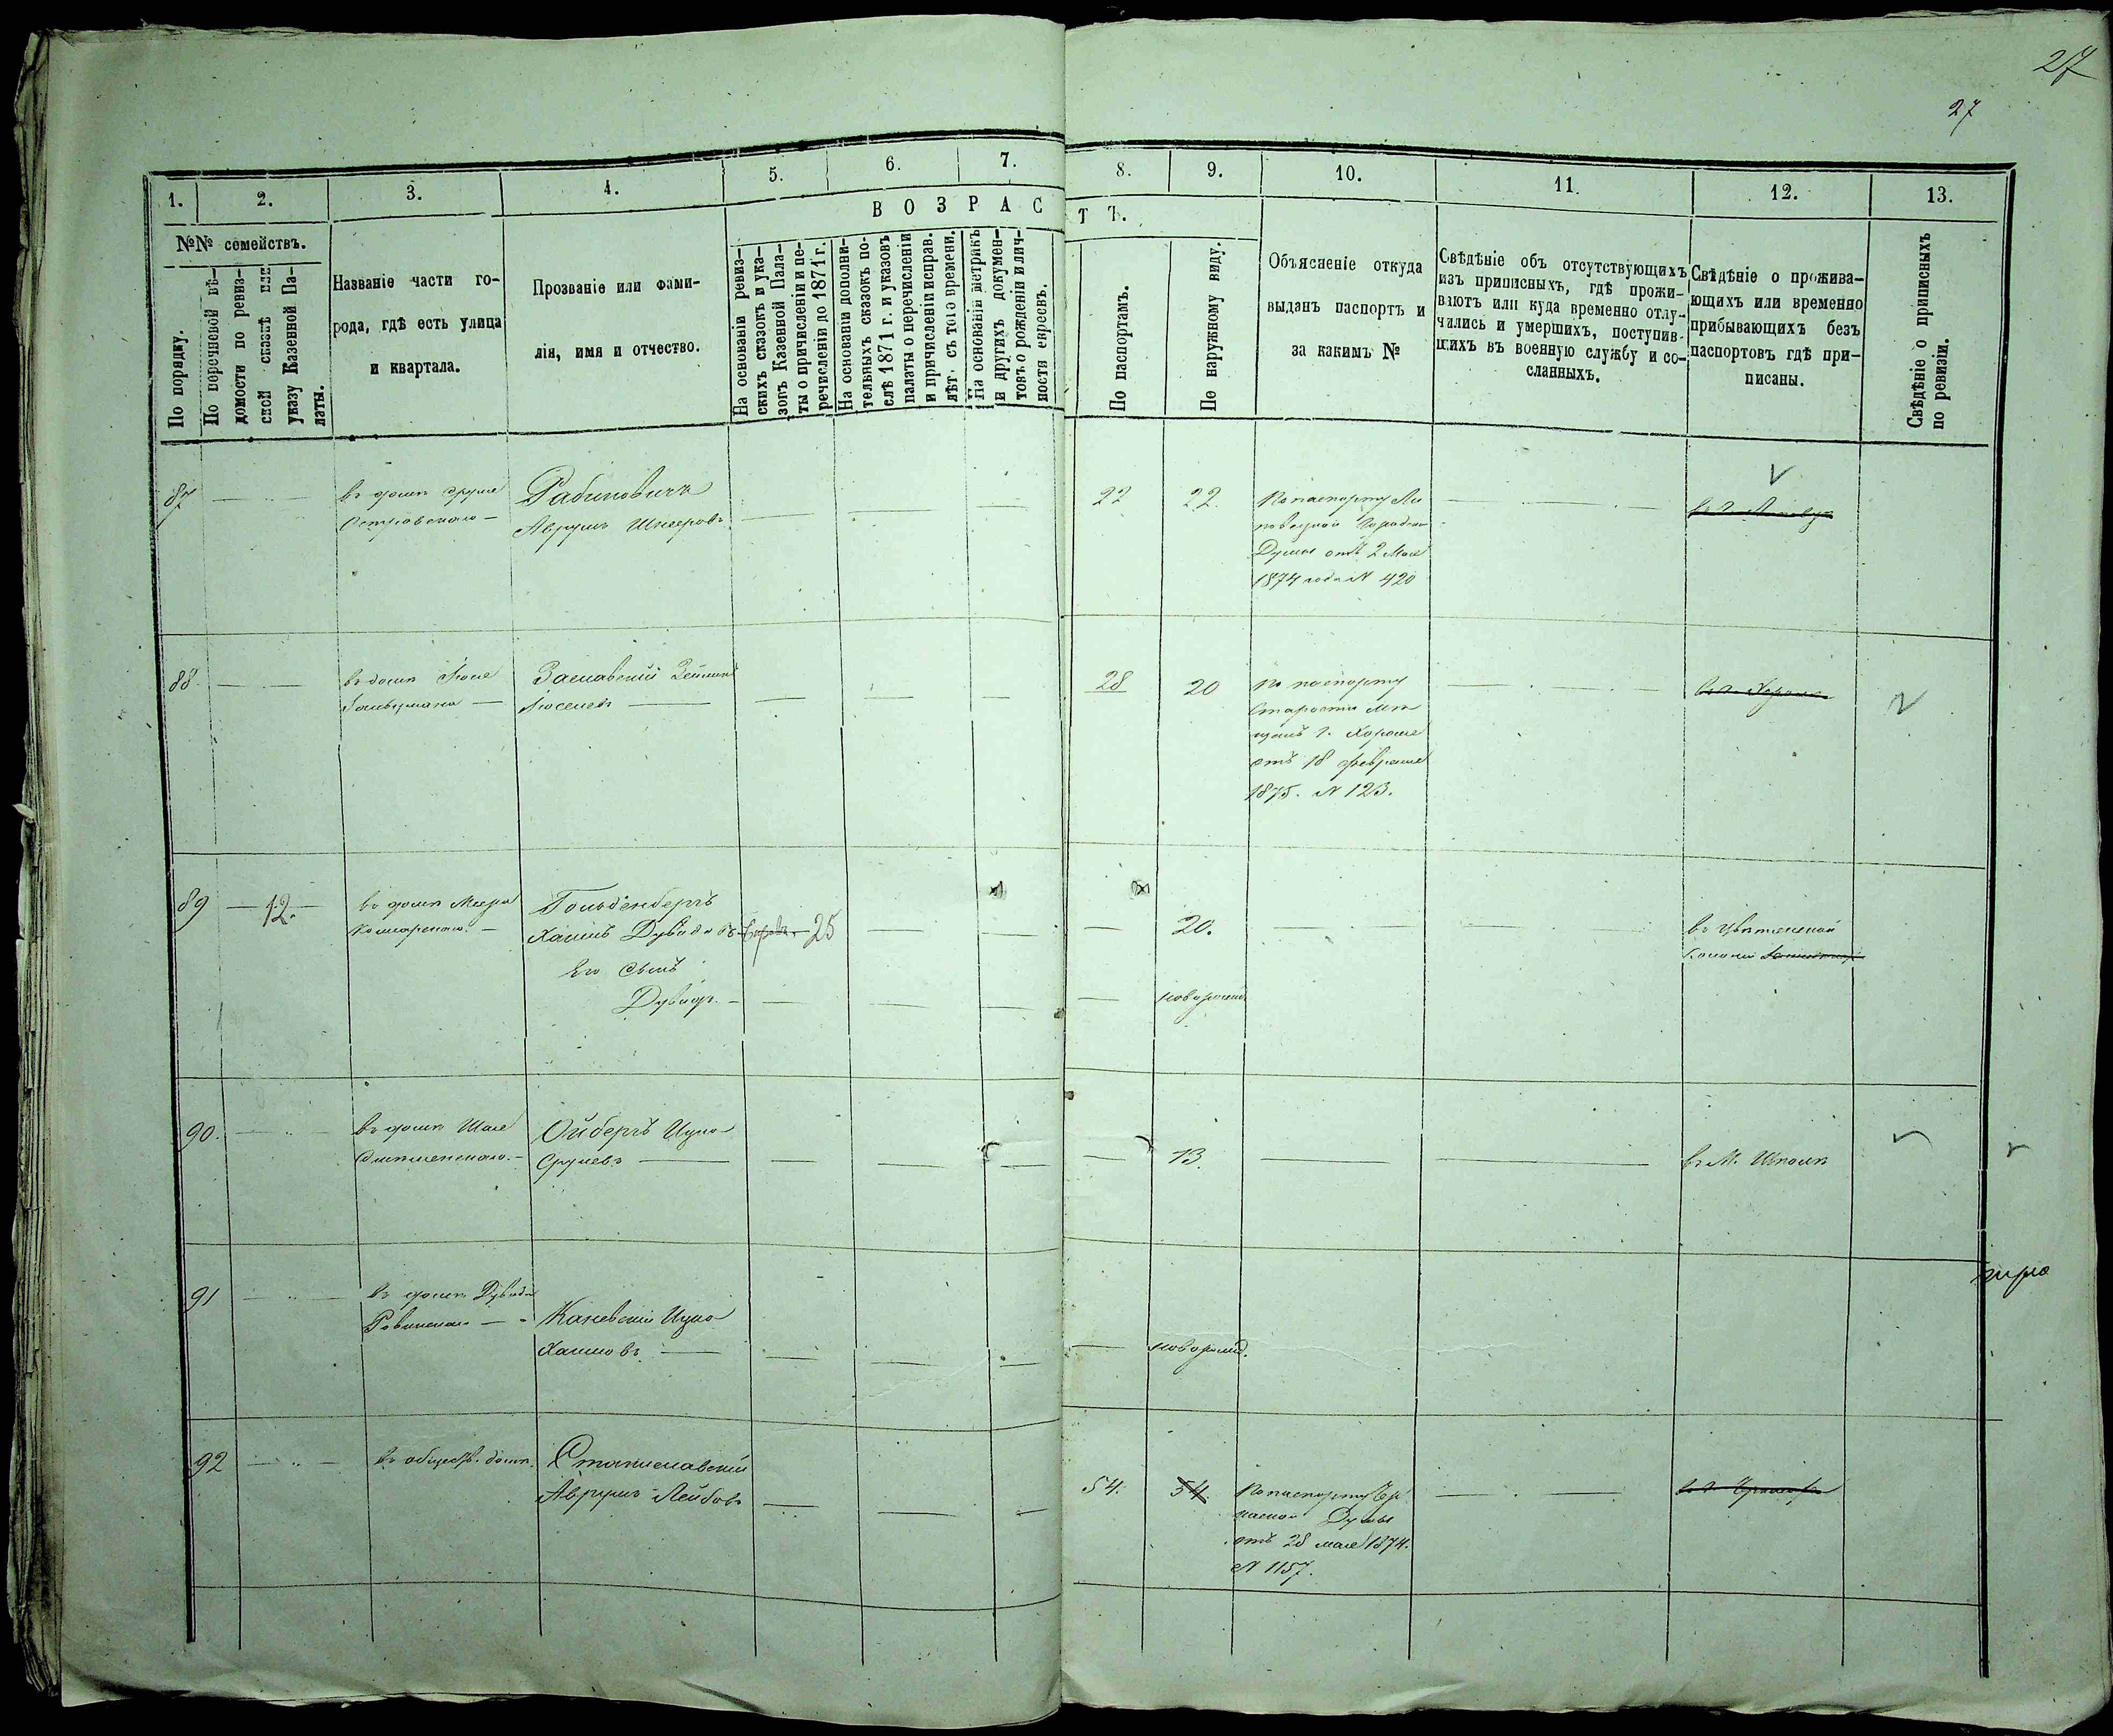 27
27
1.
2.
3.
4.
5.
6.
7.
8.
9.
10.
11.
12.
13.
№№ семействъ.
По порядку.
По перечневой вѣ-
домости по ревиз-
ской сказкѣ или
указу Казенной Па-
латы.
Названіе части го-
рода, гдѣ есть улица
и квартала.
Прозваніе или фами-
лія, имя и отчество.
ВОЗРАСТЪ.
На основаніи ревиз-
скихъ сказокъ и ука-
зовъ Казенной Пала-
ты о причисленіи и пе-
речисленіи до 1871 г.
На основаніи дополни-
тельныхъ сказокъ по-
слѣ 1871 г. и указовъ
палаты о перечисленіи
и причисленіи исправ.
лѣт. съ того времени.
На основаніи метрикъ
и другихъ докумен-
товъ о рожденіи и лич-
ности евреевъ.
По паспортамъ.
По наружному виду.
Объясненіе откуда
выданъ паспортъ и
за какимъ №
Свѣдѣніе объ отсутствующихъ
изъ приписныхъ, гдѣ прожи-
ваютъ или куда временно отлу-
чились и умершихъ, поступив-
шихъ въ военную службу и со-
сланныхъ.
Свѣдѣніе о прожива-
ющихъ или временно
прибывающихъ безъ
паспортовъ гдѣ при-
писаны.
Свѣдѣніе о приписныхъ
по ревизіи.
87
въ домѣ Сруля
Островскаго
Рабиновичъ
Аврумъ Шнееровъ
22
22.
По паспорту Ли
повецкой Городской
Думы отъ 2 Мая
1874 года № 420
88
въ домѣ
Заславскій Зейликъ
28
20
По паспорту
Старосты мѣ
щанъ г. Хорола
отъ 18 февраля
1875. № 123.
89
12.
въ домѣ Меера
Комарскаго.
Гольденбергъ
Хаимъ Дувидовъ
25
20.
въ
Колоніи
Его сынъ
Дувидъ.
новорожд
90.
въ домѣ Шаи
Ойбергъ Ицко
Срулевъ
13.
въ М. Шполѣ
91
въ домѣ Дувида
Ровинскаго
Каневскій Ицко
Хаимовъ
новорожд.
92
въ обществ. домѣ.
Станиславскій
Аврумъ Лейбовъ
54.
54.
По паспорту Чер
каской Думы
отъ 28 мая 1874.
№ 1157.